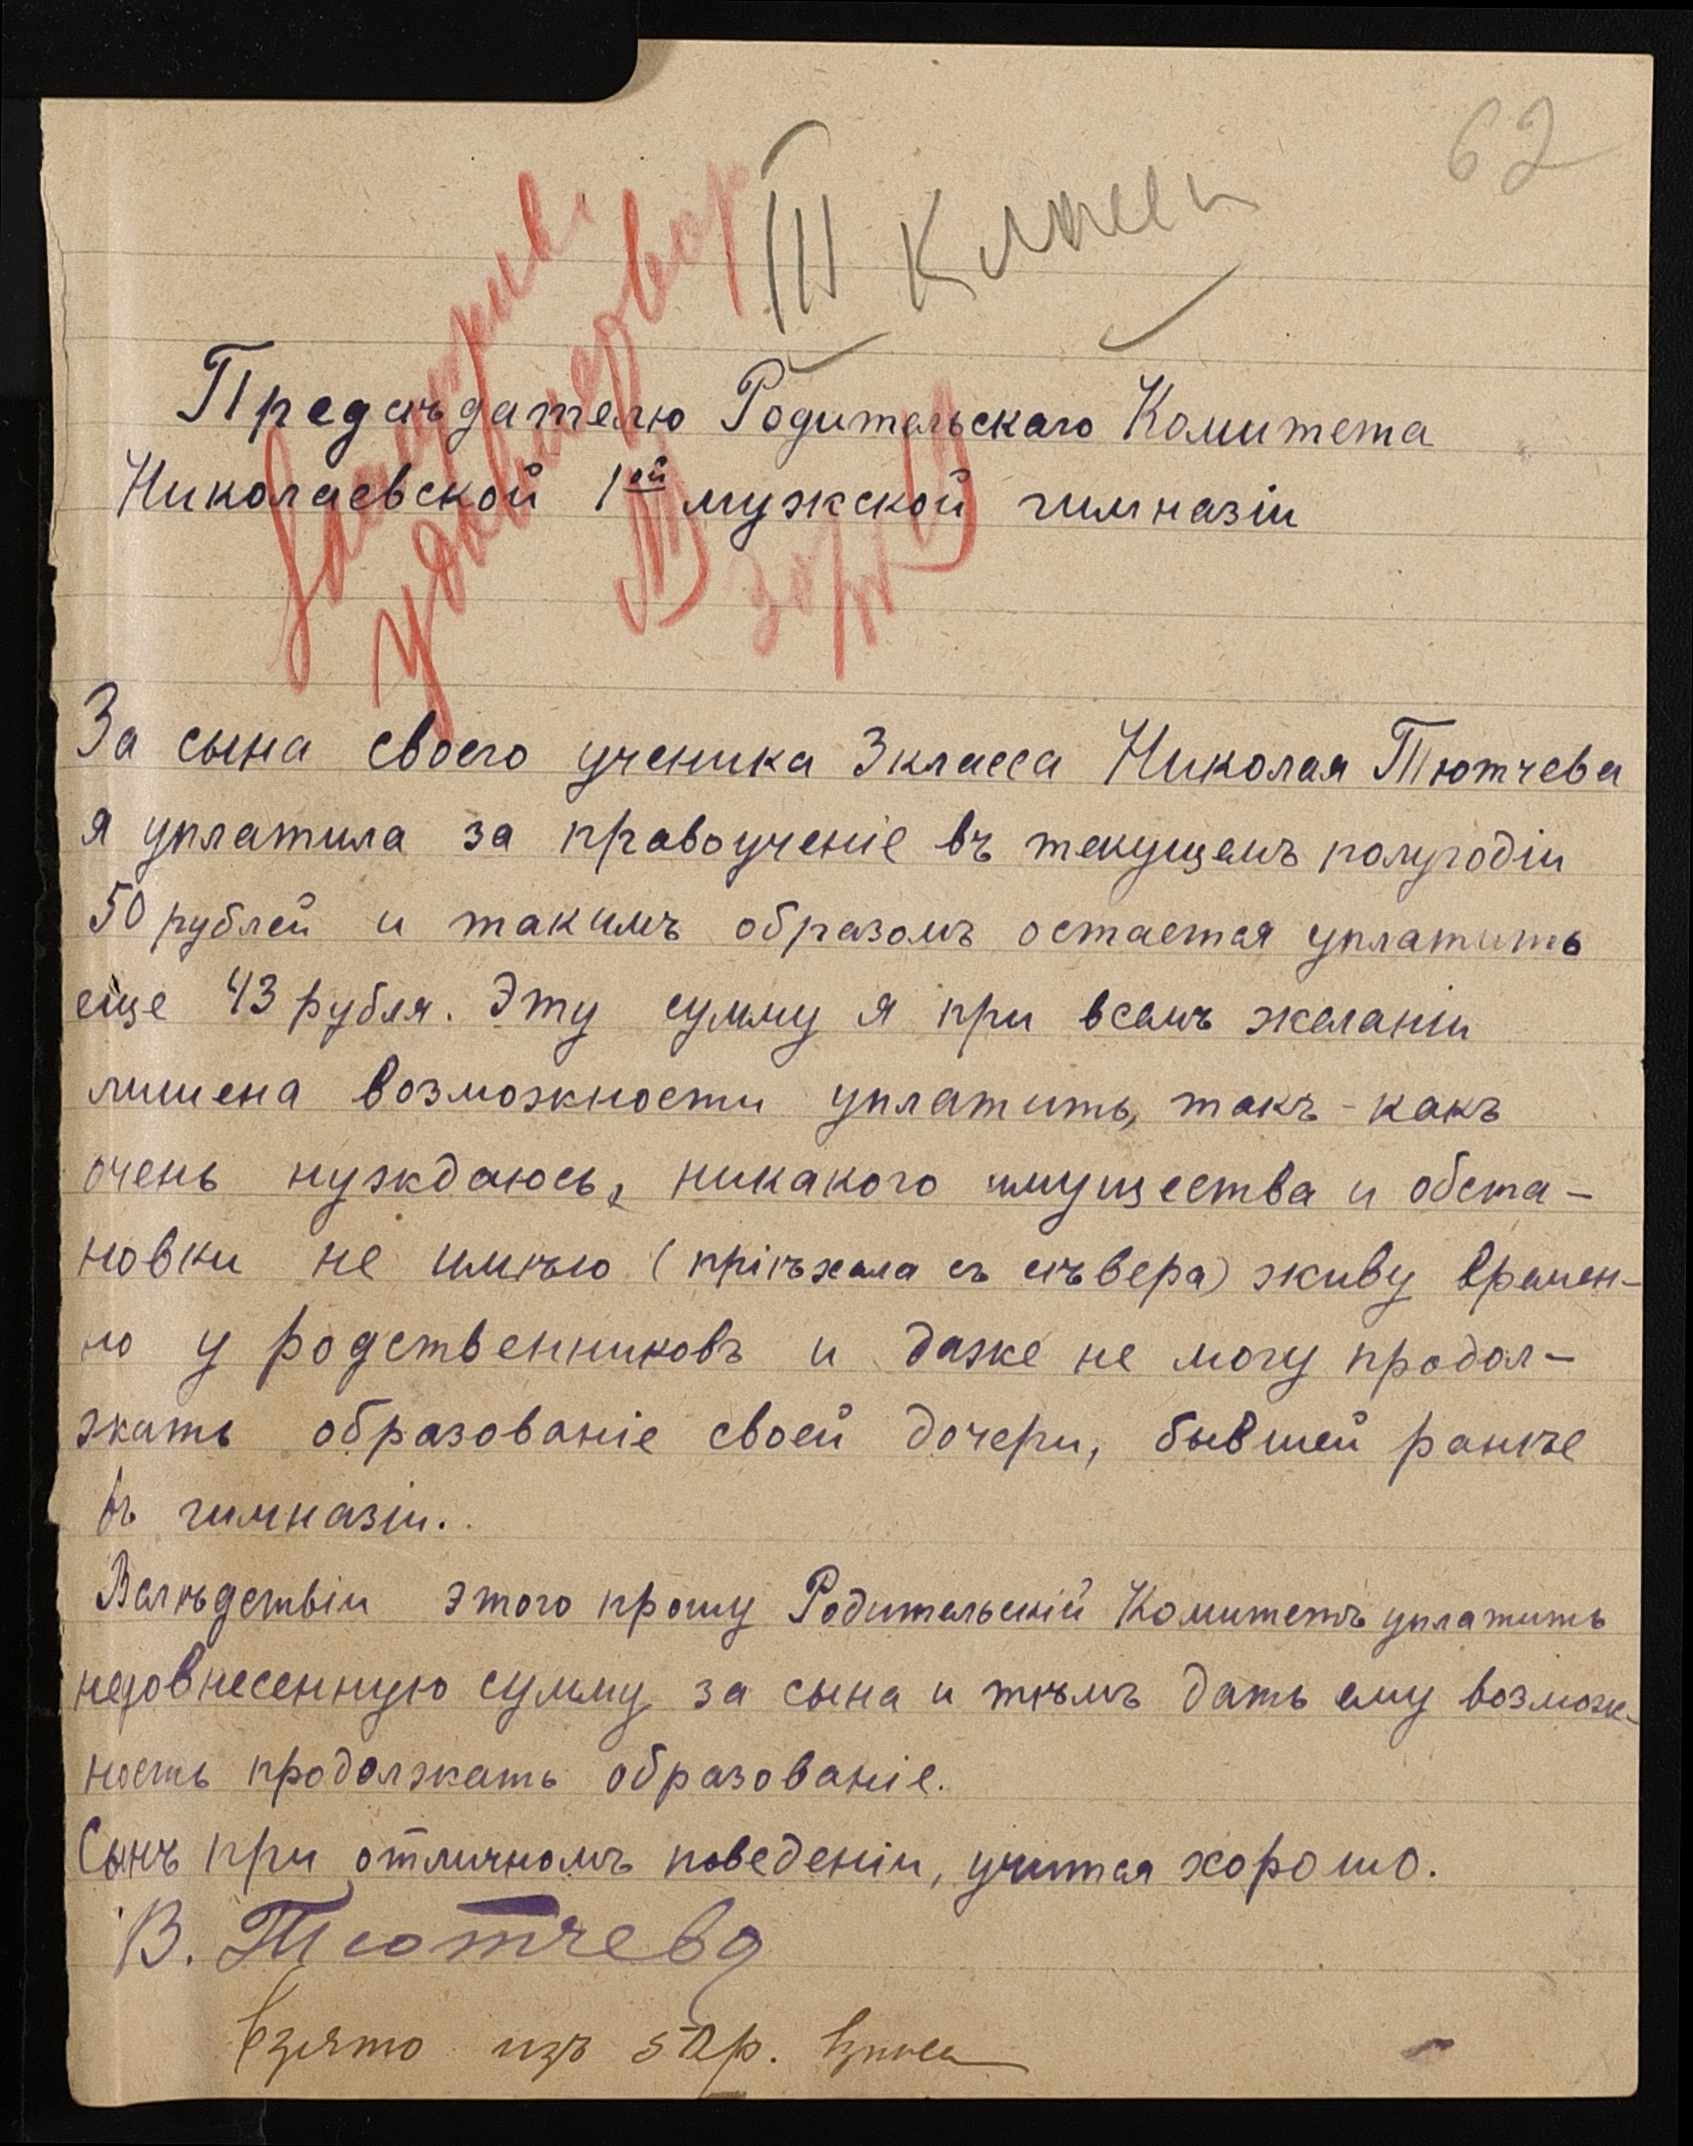 62
III класс
Предсѣдателю Родительскаго Комитета
Николаевской 1ой мужской гимназіи
За сына своего ученика 3 класса Николая Тютчева
я уплатила за правоученіе въ текущемъ полугодіи
50 рублей и такимъ образомъ остается уплатить
еще 43 рубля. Эту сумму я при всемъ желаніи
лишена возможности уплатить, такъ-какъ
очень нуждаюсь, никакого имущества и обста-
новки не имѣю (пріѣхала съ сѣвера) живу времен-
но у родственниковъ и даже не могу продол-
жать образованіе своей дочери, бывшей ранѣе
въ гимназіи.
Вслѣдствіи этого прошу Родительскій Комитетъ уплатить
недовнесенную сумму за сына и тѣмъ дать ему возмож-
ность продолжать образованіе.
Сынъ при отличномъ поведеніи, учится хорошо.
В. Тютчева
взято изъ 50 р.